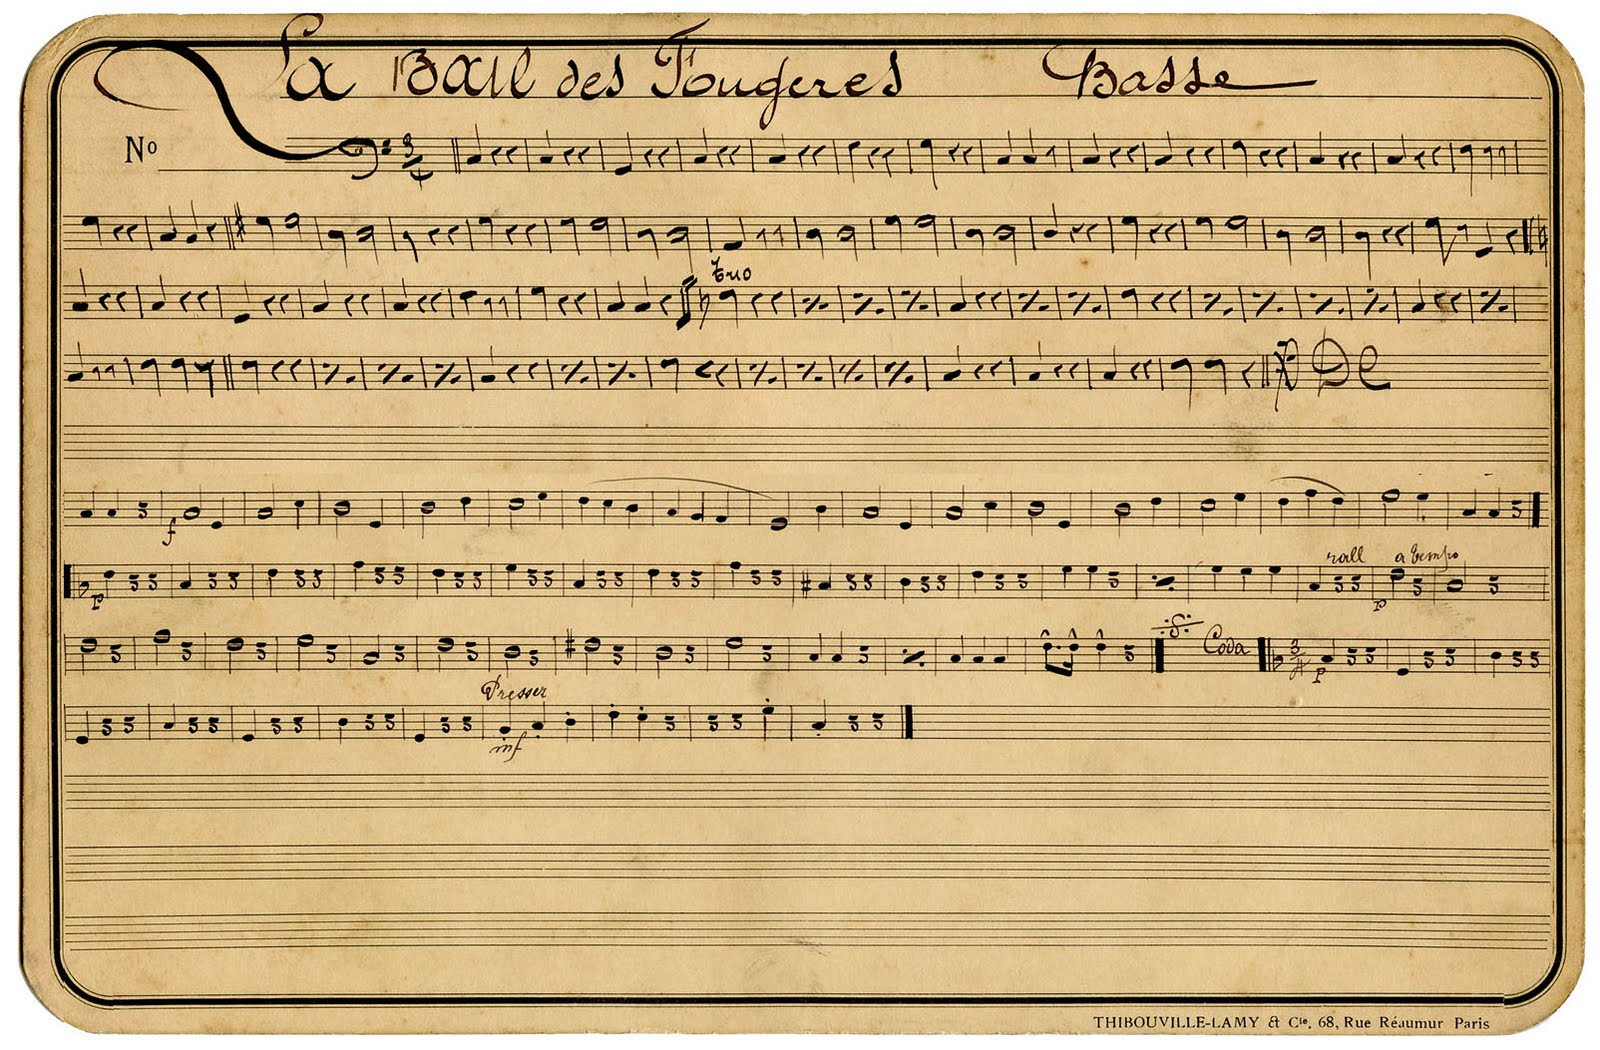 La Bail des Fougeres Basse
Nº
3 4
Trio
DC
f
rall a tempo
p p
Coda 3 4
p
Presser
mf
THIBOUVILLE-LAMY & Cie, 68, Rue Réaumur Paris